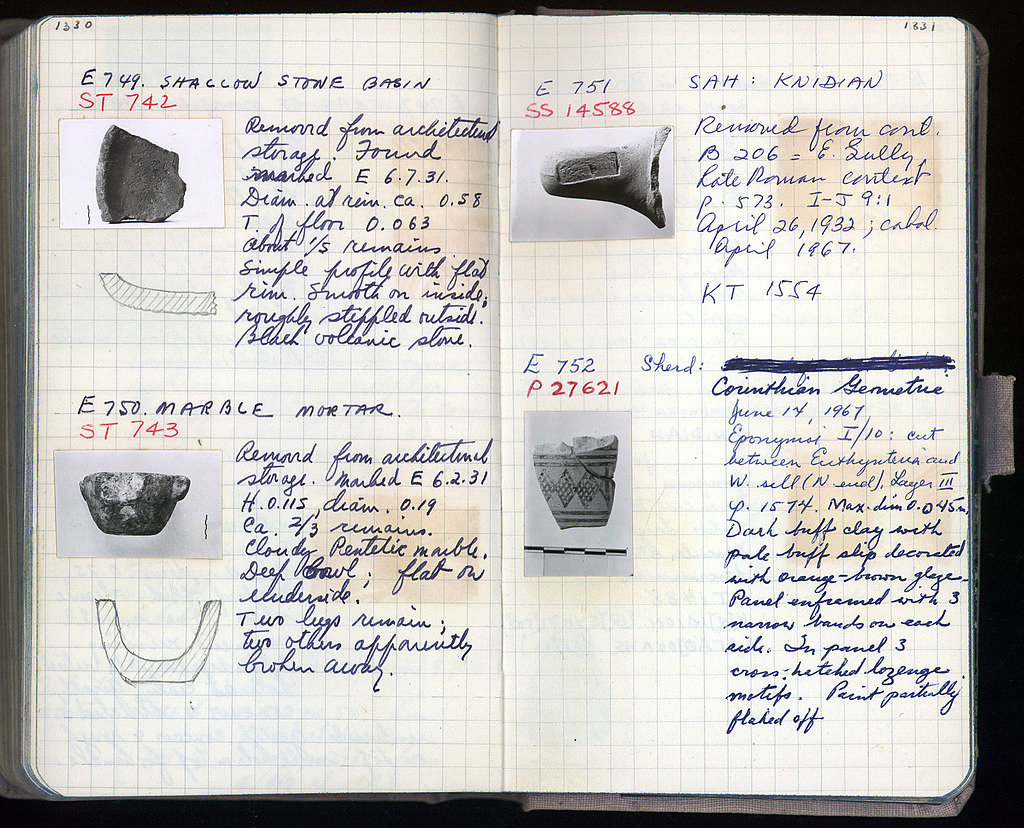 1330
E 749. SHALLOW STONE BASIN
ST 742
Removed from architectural
storage. Found
marked E 6.7.31.
Diam. at rim. ca. 0.58
T. of floor 0.063
About 1/5 remains
Simple profile with flat
rim. Smooth on inside;
roughly stippled outside.
Black volcanic stone.
E 750. MARBLE MORTAR.
ST 743
Removed from architectural
storage. Marked E 6.2.31
H. 0.115, diam. 0.19
Ca. 2/3 remains.
Cloudy Pentelic marble.
Deep bowl; flat on
underside.
Two lugs remain;
two others apparently
broken away.
1331
E 751 SAH: KNIDIAN
SS 14588
Removed from cont.
B 206 = E. Gully,
Late Roman context
p. 573. I-J 9:1
April 26, 1932; catal.
April 1967.
KT 1554
E 752 Sherd:
P 27621
Corinthian Geometric
June 14, 1967
Eponymoi I/10: cut
between Euthynteria and
W. sill (N. end), Layer III
p. 1574. Max. dim 0.045 m.
Dark buff clay with
pale buff slip decorated
with orange-brown glaze.
Panel enframed with 3
narrow bands on each
side. In panel 3
cross-hatched lozenge
motifs. Paint partially
flaked off